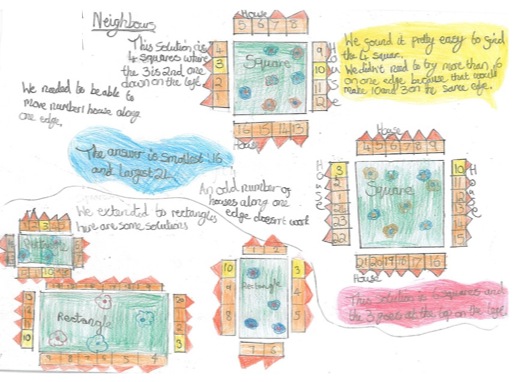 Neighbours
House
5 6 7 8
This solution is
4 squares where
the 3 is 2nd one
down on the left
4
3
2
1
Square
9
10
11
12
House
16 15 14 13
House
We found it pretty easy to find
the 4 squar.
We didn't need to try more than 6
on one edge because that would
make 10 and 3 on the same edge.
We needed to be able to
move number 1 house along
one edge.
The answer is smallest 16
and largest 24
An odd number of
houses along one
edge doesn't work
House
4 5 6 7 8 9
3
2
1
Square
10
11
House
House
This solution is 6 squares and
the 3 goes at the top on the left
We extended to rectangles
here are some solutions
Rectangle
Rectangle
10
1 2
10
9
8
Rectangle
3
4
5
7 6
3
4